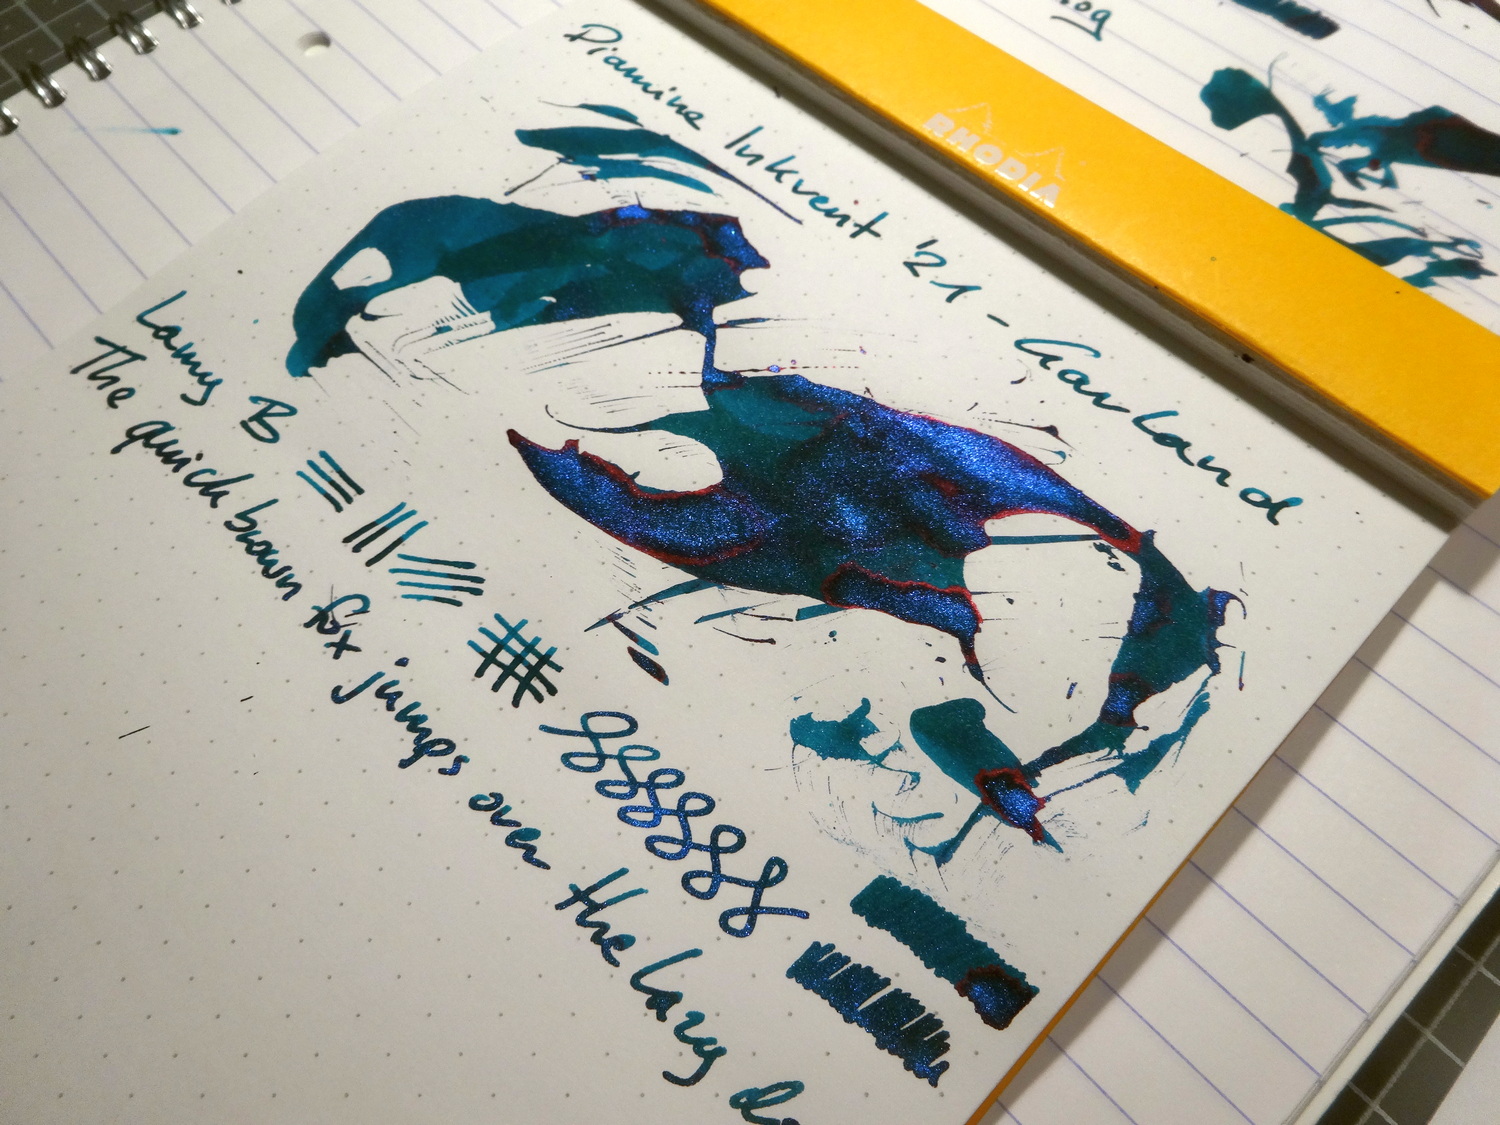 Diamine Inkvent '21 - Garland
RHODIA
Lamy B
The quick brown fox jumps over the lazy